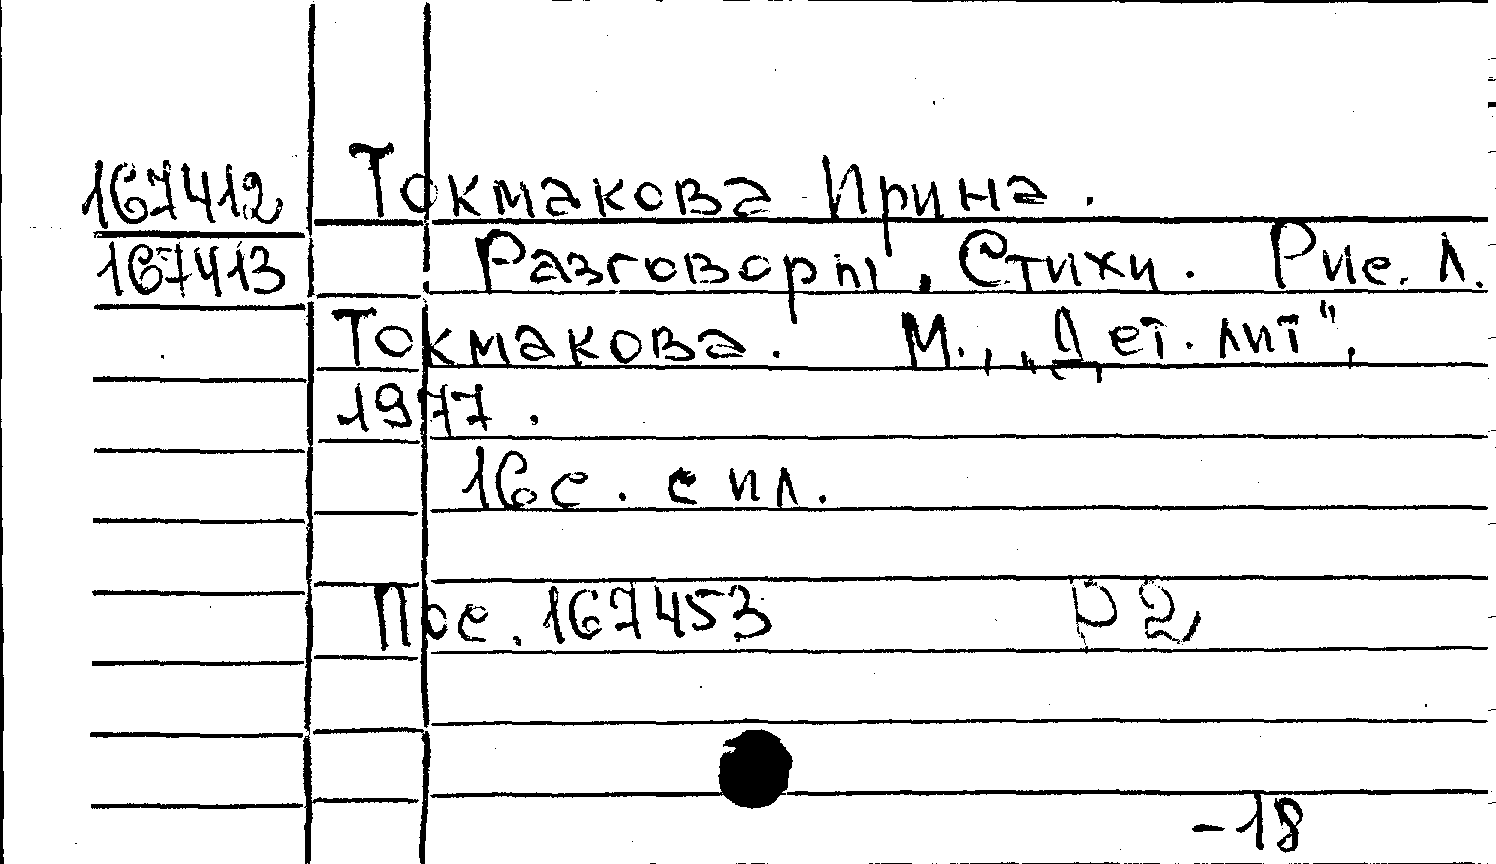 167412 Токмакова Ирина.
167413 Разговоры. Стихи. Рис. Л.
Токмакова. М., „Дет. лит",
1977.
16с. с ил.
Пос. 167453 Р2
-18